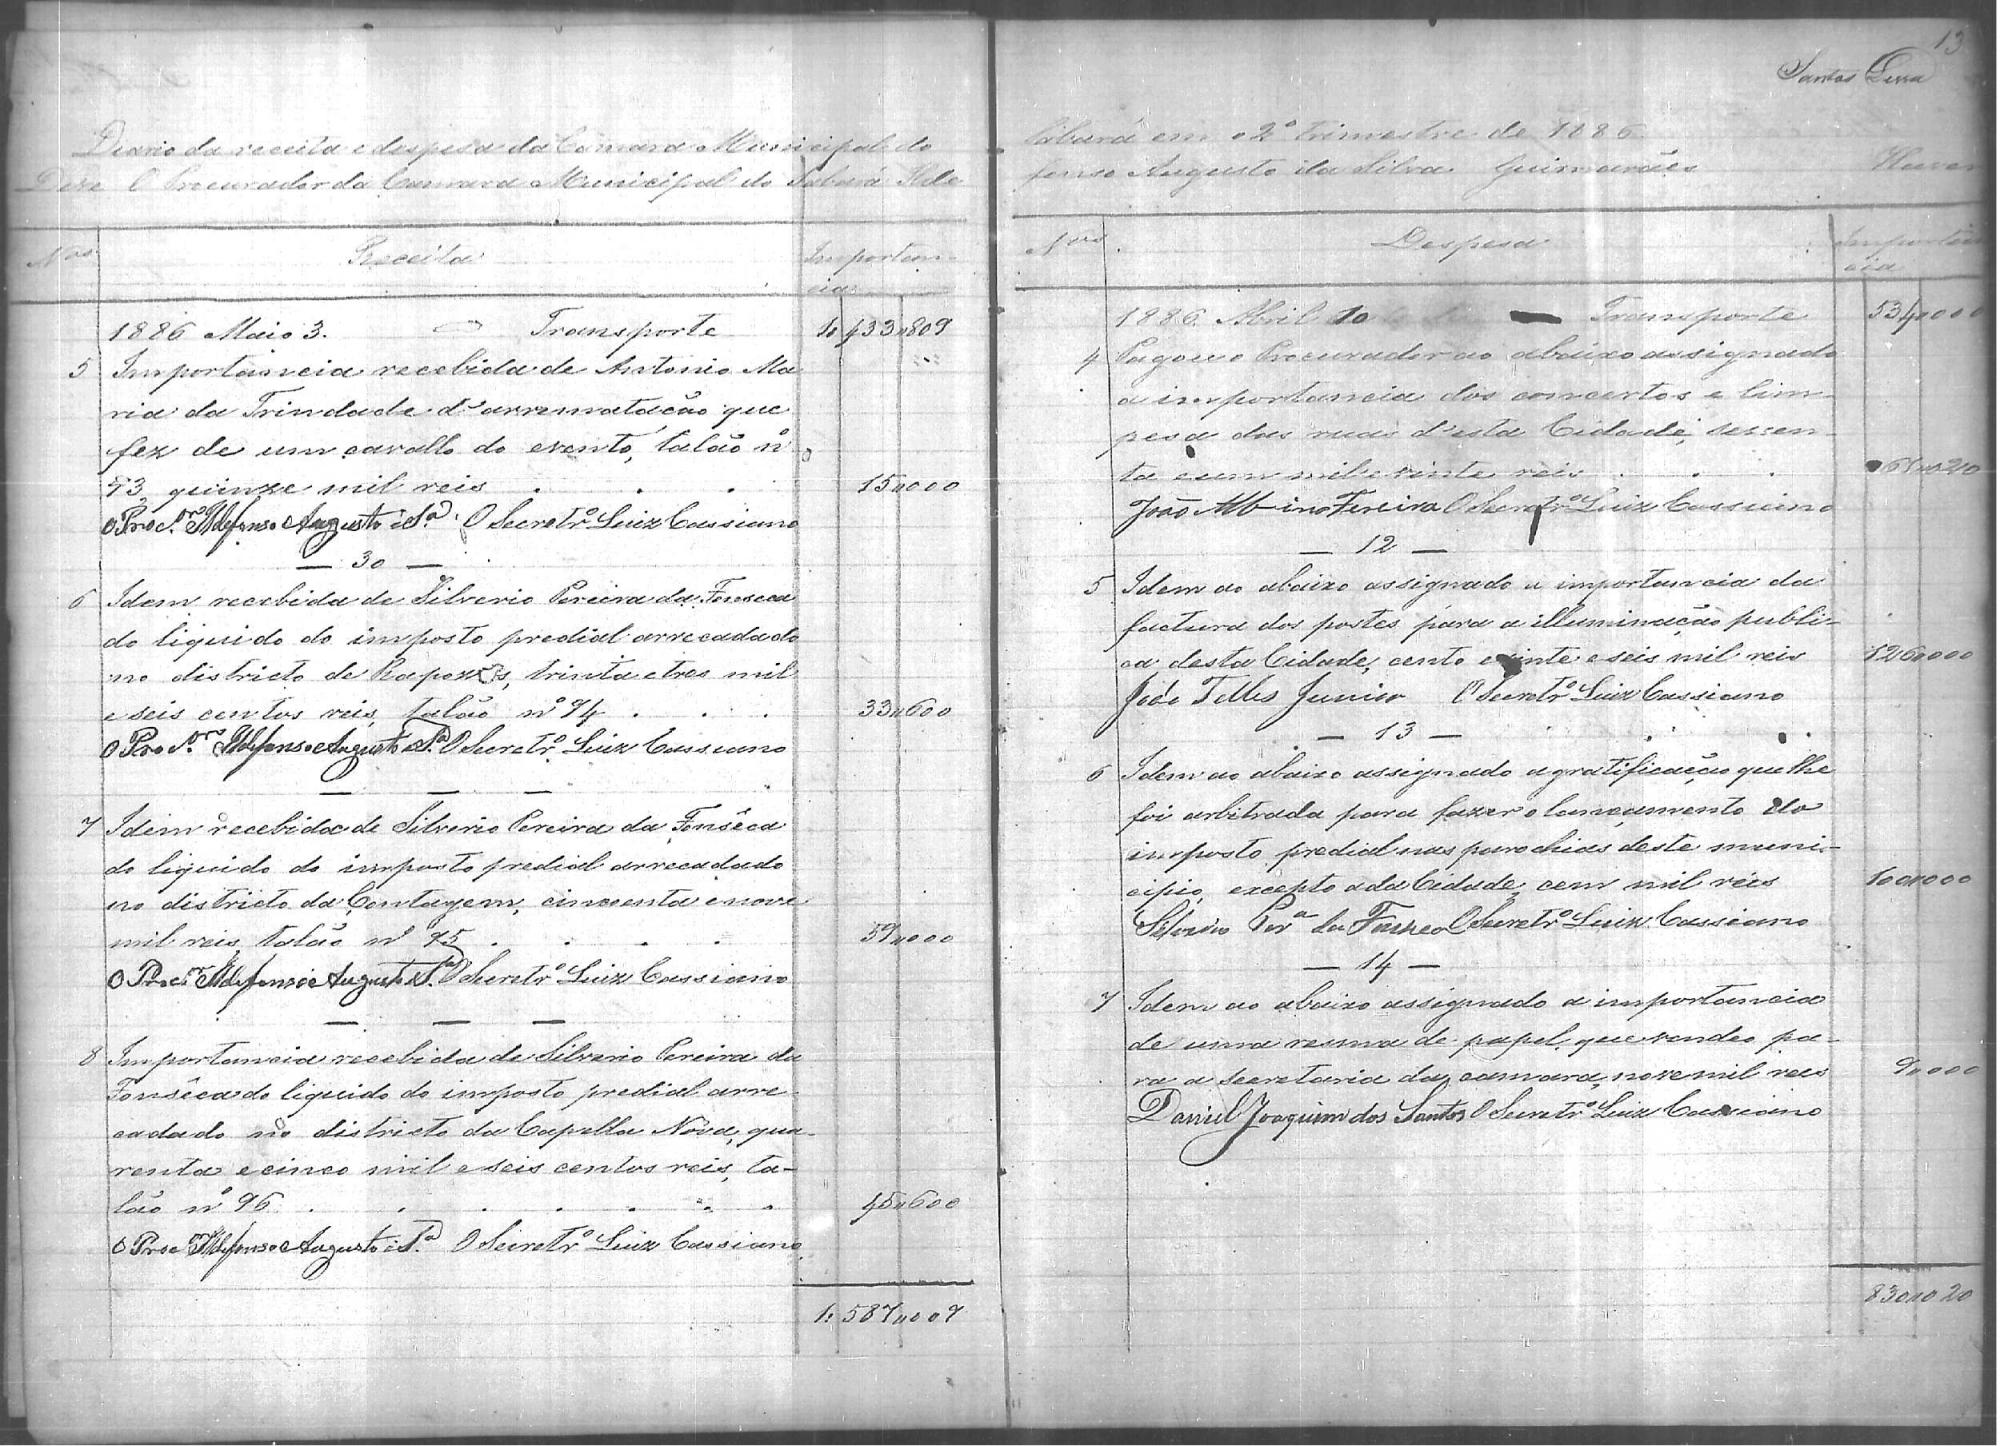 Diario da receita e despesa da Camara Municipal do
Deve O Procurador da Camara Municipal do Sabará Ilde
Nos Receita Importan-
cias
1886 Maio 3. Transporte 1:433$809
5 Importancia recebida de Antonio Ma
ria da Trindade d'arrematação que
fez de um cavallo do evento, talão nº
93, quinze mil reis . . . 15$000
O Procor Ildefonso Augusto da Sa O Secretrº Luiz Cassiano
— 30 —
6 Idem recebida de Silverio Pereira da Fonseca
do liquido do imposto predial arrecadado
no districto de Rapozos, trinta e tres mil
e seis centos reis, talão nº 94 . . . 33$600
O Procor Ildefonso Augusto da Sa O Secretrº Luiz Cassiano
— — —
7 Idem recebida de Silverio Pereira da Fonsêca
do liquido do imposto predial arrecadado
no districto da Contagem, cincoenta e nove
mil reis, talão nº 95 . . . . 59$000
O Procor Ildefonso Augusto da Sa O Secretrº Luiz Cassiano
— — —
8 Importancia recebida de Silverio Pereira da
Fonsêca do liquido do imposto predial arre-
cadado no districto da Capella Nova, qua-
renta e cinco mil e seis centos reis, ta-
lão nº 96 . . . . . . . 45$600
O Procor Ildefonso Augusto da Sa O Secretrº Luiz Cassiano
1:587$009
13
Santos Serra
Sabará em o 2º trimestre de 1886
fonso Augusto da Silva Guimarães Haver
Nos. Despesa Importan
cia
1886. Abril 10 — Transporte 534$000
4 Pagou o Procurador ao abaixo assignado
a importancia dos concertos e lim-
pesa das ruas d'esta Cidade, sessen-
ta e um mil e vinte reis . . . 61$020
João Albino Fereira O Secretrº Luiz Cassiano
— 12 —
5 Idem ao abaixo assignado a importancia da
factura dos postes para a illuminação publi-
ca desta Cidade, cento e vinte e seis mil reis 126$000
João Telles Junior O Secretrº Luiz Cassiano
— 13 —
6 Idem ao abaixo assignado a gratificação que lhe
foi arbitrada para fazer o lançamento do
imposto predial nas parochias deste muni-
cipio, excepto a da Cidade, cem mil réis 100$000
Silverio Pera da Fonseca O Secretrº Luiz Cassiano
— 14 —
7 Idem ao abaixo assignado a importancia
de uma resma de papel que vendeo pa-
ra a secretaria da camara, nove mil reis 9$000
Daniel Joaquim dos Santos O Secretrº Luiz Cassiano
830$020